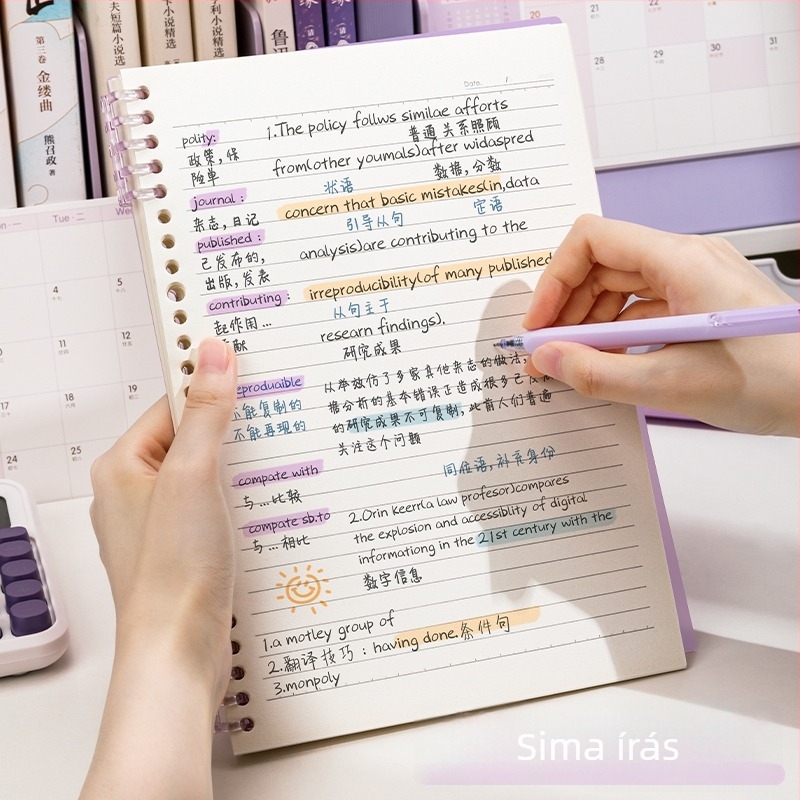 第三卷
金缕曲
熊召政
夫短篇小说精选
小说精选
小说精选
鲁迅
Tue·二
We
4
5
11
12
18
19
24
25
20
21
22
28
29
30
31
Date.
polity:
政策,保
险单
journal:
杂志,日记
published:
己发布的,
出版,发表
contributing:
起作用...
献
eproduaible
不能复制的
不能再现的
compate with
与...比较
compate sb.to
与...相比
1.The policy follws similae afforts
普通 关系照顾
from(other youmals)after widaspred
状语
数据,分数
concern that basic mistakes(in,data
引导从句
定语
analysis)are contributing to the
irreproducibility(of many published
从句主干
researn findings).
研究成果
从举效仿了多家其他杂志的做法,
据分析的基本错误正造成很多己发
的研究成果不可复制,此前人们普遍
关注这个问题
同位语,补充身份
2.Orin Keerr(a law profesor)compares
the explosion and accessiblity of digital
informationg in the 21st century with the
数字信息
1.a motley group of
2.翻译技巧:having done.条件句
3.monpoly
Sima írás